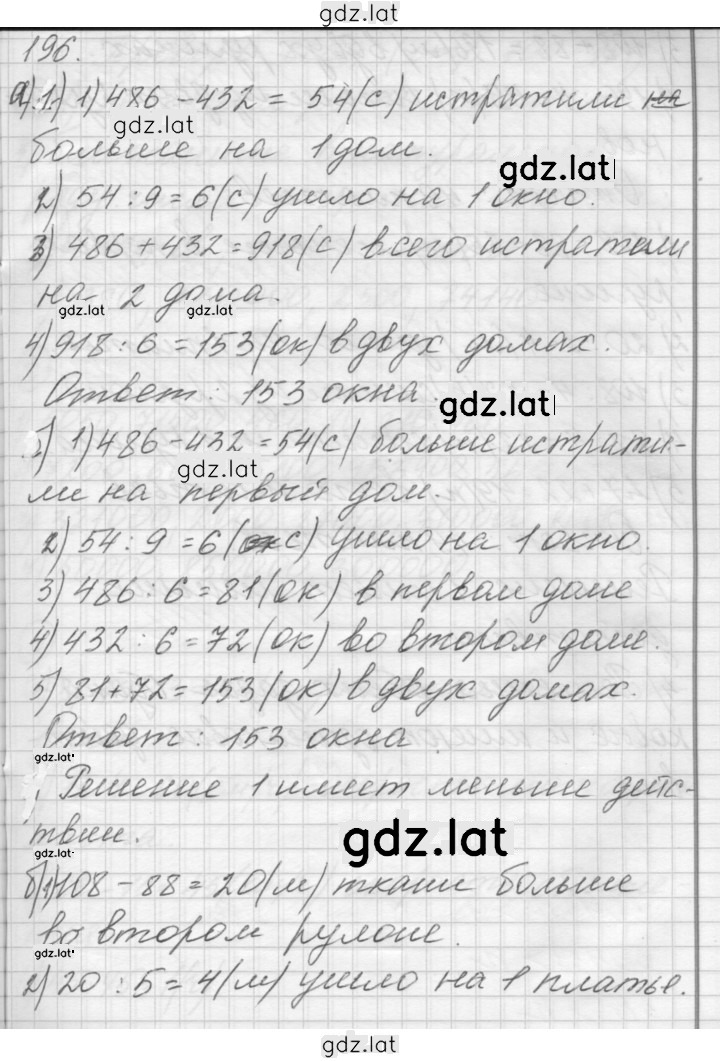 gdz.lat
196.
а) 1) 1) 486 - 432 = 54(с) истратили на
gdz.lat
больше на 1 дом.
gdz.lat
2) 54 : 9 = 6(с) ушло на 1 окно.
3) 486 + 432 = 918(с) всего истратили
на 2 дома.
gdz.lat gdz.lat
4) 918 : 6 = 153(ок) в двух домах.
Ответ: 153 окна.
gdz.lat
1) 486 - 432 = 54(с) больше истрати-
gdz.lat
ли на первый дом.
2) 54 : 9 = 6(с) ушло на 1 окно.
3) 486 : 6 = 81(ок) в первом доме
4) 432 : 6 = 72(ок) во втором доме.
5) 81 + 72 = 153(ок) в двух домах.
Ответ: 153 окна.
gdz.lat
Решение 1 имеет меньше дейс-
твии.
gdz.lat
gdz.lat
б) 1) 108 - 88 = 20(м) ткани больше
во втором рулоне.
gdz.lat
2) 20 : 5 = 4(м) ушло на 1 платье.
gdz.lat